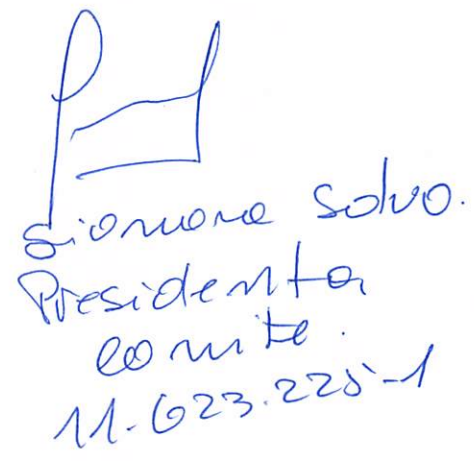 Siomara Salvo.
Presidenta
comite.
11.623.225-1